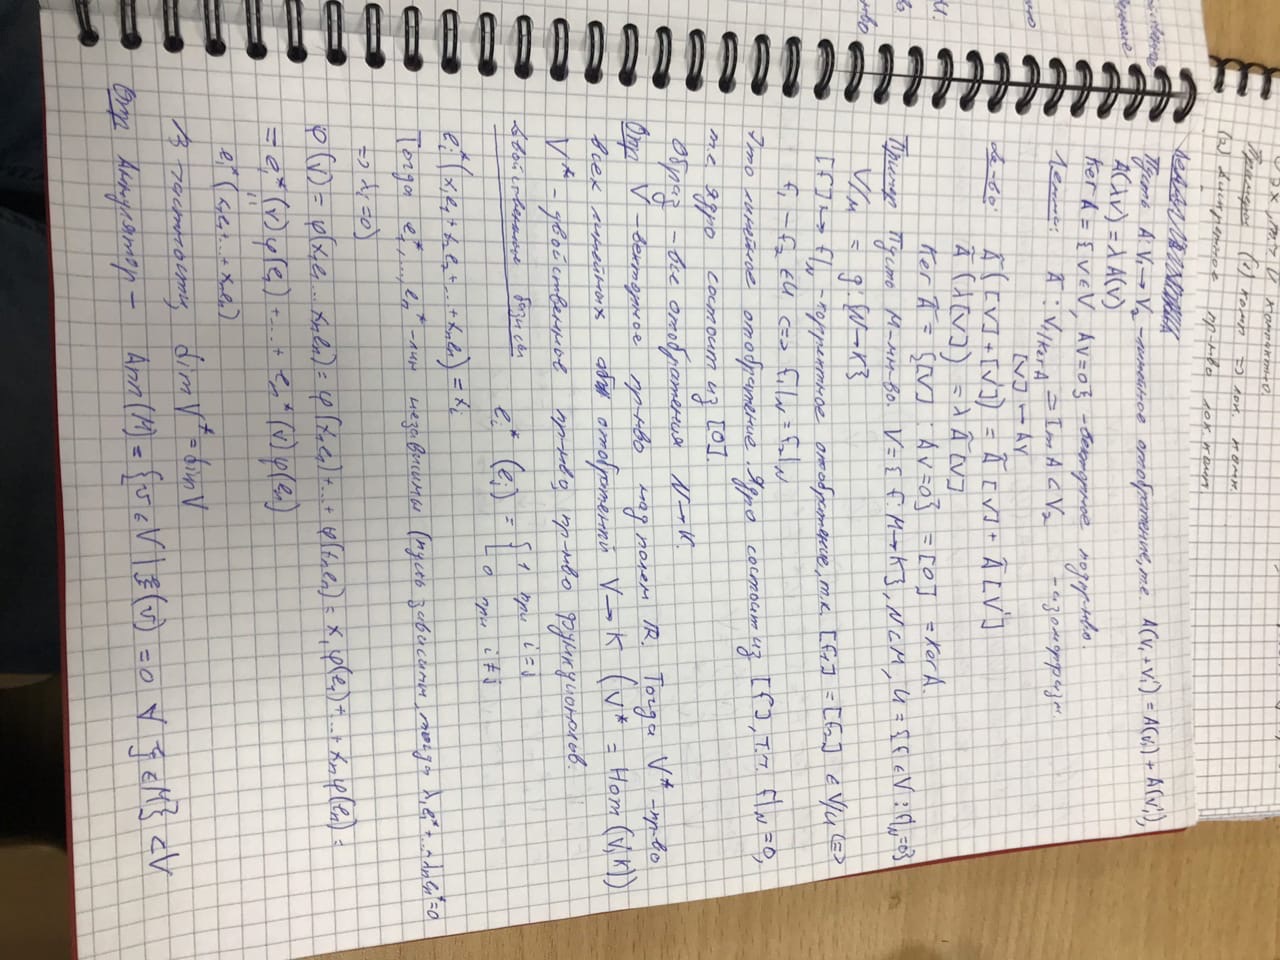 ∃x, т.ч U компактно.
Примеры (1) комп => лок. комп.
(2) Дискретное пр-нво лок. комп.
Пусть A: V₁ → V₂ - линейное отображение, т.е. A(v₁ + v₁') = A(v₁) + A(v₁'),
A(λv) = λ A(v)
Ker A = { v ∈ V, Av=0} - векторное подпр-нво.
Лемма: Ã : V₁/Ker A = Im A ⊂ V₂ - изоморфизм.
[v] ↦ Av
Док-во: Ã ([v] + [v']) = Ã [v] + Ã [v']
Ã (λ[v]) = λ Ã [v]
Ker Ã = {[v] : Av=0} = [0] = Ker A.
Пример Пусть M-мн-во. V = { f: M→K}, N⊂M, U = {f ∈ V : f|_N =0}
V/M = g: {N→K}
[f] ↦ f|_N - корректное отображение, т.к. [f₁] = [f₂] ∈ V/U <=>
f₁ - f₂ ∈ U <=> f₁|_N = f₂|_N
Это линейное отображение. Ядро состоит из [f], т.ч. f|_N = 0,
т.е. ядро состоит из [0].
Образ - все отображения N→K.
Опр V - векторное пр-нво над полем R. Тогда V* - пр-во
всех линейных отображений V→K (V* = Hom (V, K))
V* - двойственное пр-нво, пр-нво функционалов.
Двойственные базисы e_i* (e_j) = { 1 при i=j
0 при i≠j
e_i* (x₁e₁ + x₂e₂ + ... + x_n e_n) = x_i
Тогда e₁*, ..., e_n* - лин независимы (пусть зависимы, тогда λ₁e₁* + ... + λ_n e_n* = 0
=> λ_i = 0)
φ(v) = φ(x₁e₁ ... x_n e_n) = φ(x₁e₁) + ... + φ(x_n e_n) = x₁φ(e₁) + ... + x_n φ(e_n) =
= e₁*(v) φ(e₁) + ... + e_n*(v) φ(e_n)
"
e₁* (x₁e₁ + ... + x_n e_n)
В частности, dim V* = dim V
Опр Аннулятор - Ann(M) = {v ∈ V | ξ(v) = 0 ∀ ξ ∈ M} ⊂ V